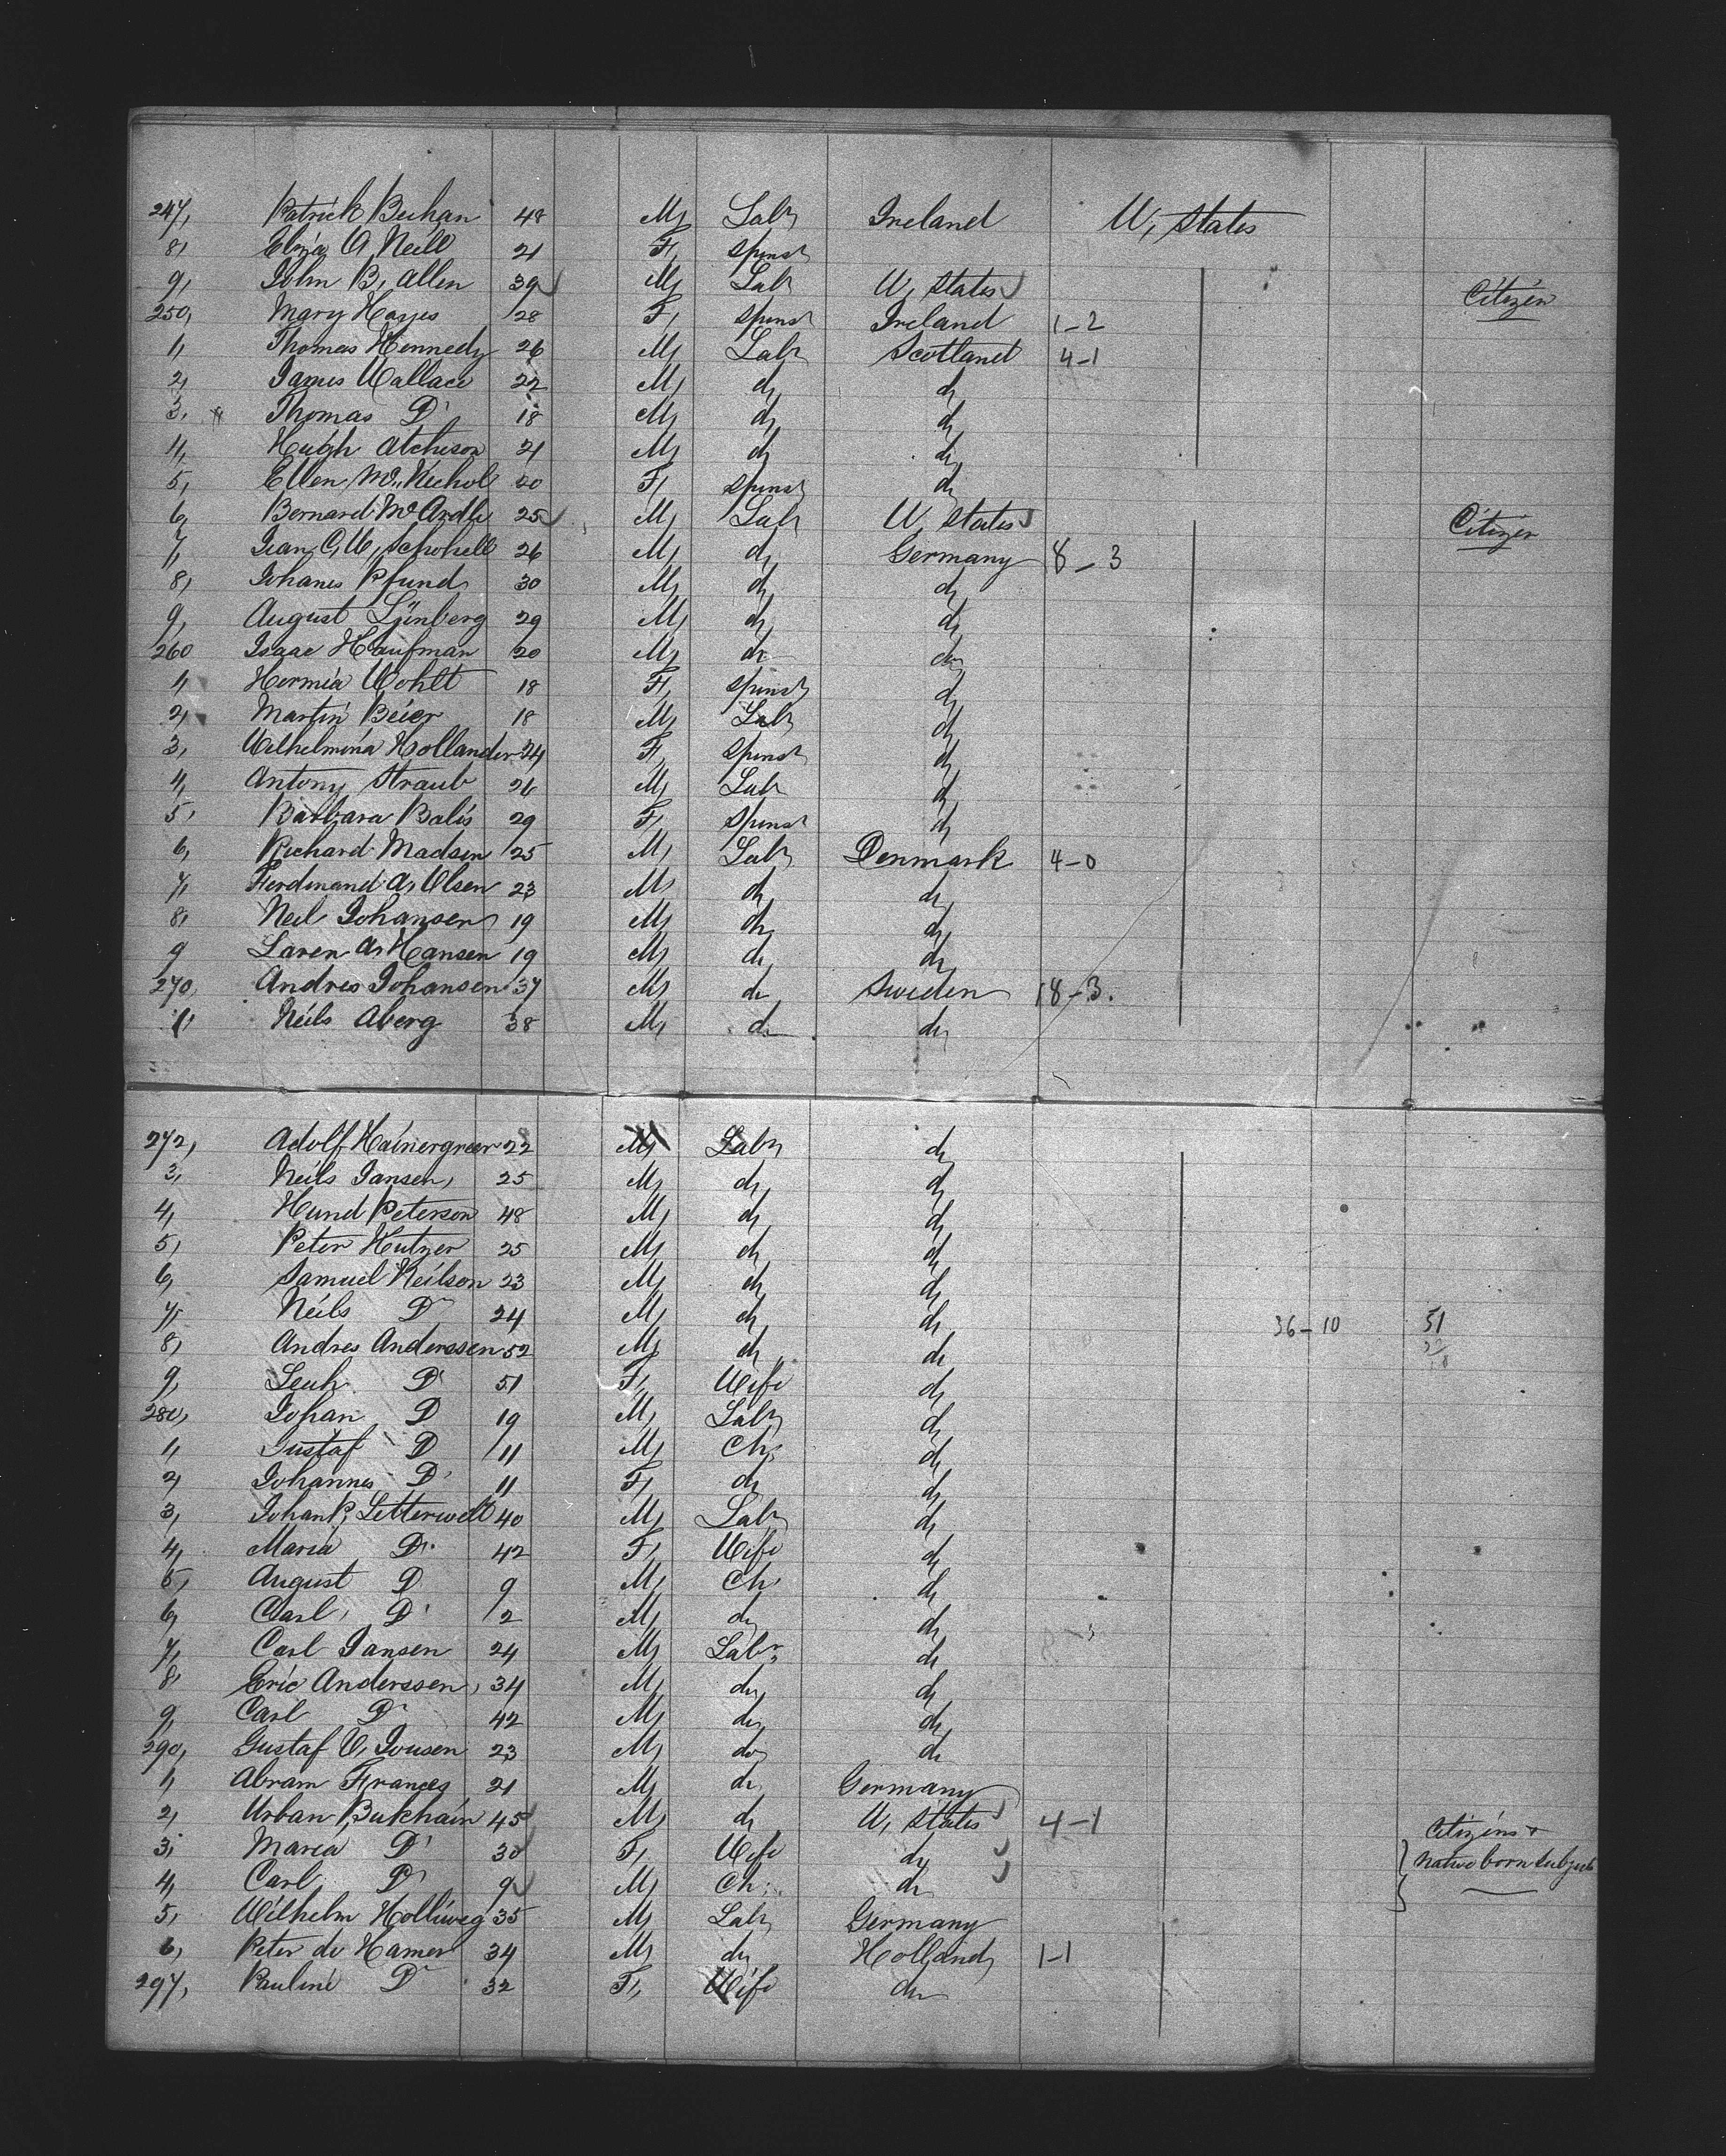 247, Patrick 48 M, Labr Ireland U, States
8, Eliza O Neill 21 F, Spinst
9, John B, Allen 39 M, Labr U, States Citizen
250, Mary Hayes 28 F, Spinst Ireland 1-2
1, Thomas Kennedy 26 M, Labr Scotland 4-1
2, James Wallace 22 M, do do
3, Thomas Do 18 M, do do
4, Hugh Atcheson 21 M, do do
5, Ellen McNichol 20 F, Spinst do
6, Bernard McArdle 25 M, Labr U, States Citizen
7, 26 M, do Germany 8-3
8, Johanes Pfund 30 M, do do
9, August 29 M, do do
260 Isaac Kaufman 20 M, do do
1, Hermia Wohlt 18 F, Spinst do
2, Martin Beier 18 M, Labr do
3, Wilhelmina Hollander 24 F, Spinst do
4, Antony Straub 26 M, Labr do
5, Barbara Balis 29 F, Spinst do
6, Richard Madsen 25 M, Labr Denmark 4-0
7, Ferdinand A, Olsen 23 M, do do
8, Neil Johansen 19 M, do do
9 Laren A, Hansen 19 M, do do
270, Andres Johansen 37 M, do Sweden 18-3.
1, Neils Aberg 38 M, do do
272, Adolf 22 M, Labr do
3, Neils Jansen, 25 M, do do
4, Peterson 48 M, do do
5, Peter 25 M, do do
6, Samuel Neilson 23 M, do do
7, Neils Do 24 M, do do 36-10 51
8, Andres Anderssen 52 M, do do
9, Do 51 F, Wife do
280, Johan Do 19 M, Labr do
1, Gustaf Do 11 M, Ch, do
2, Johannes Do 11 F, do do
3, Johan P, Letterwelt 40 M, Labr do
4, Maria Do 42 F, Wife do
5, August Do 9 M, Ch, do
6, Carl, Do 2 M, do do
7, Carl Jansen 24 M, Labr, do
8, Eric Anderssen, 34 M, do do
9, Carl Do 42 M, do do
290, Gustaf V, 23 M, do do
1, Abram Frances 21 M, do Germany
2, Urban 45 M, do U, States 4-1 Citizens &
3, Maria Do 30 F, Wife do native born subjects
4, Carl Do 9 M, Ch, do
5, Wilhelm Holliweg 35 M, Labr Germany
6, Peter de Hamer 34 M, do Holland 1-1
297, Pauline Do 32 F, Wife do